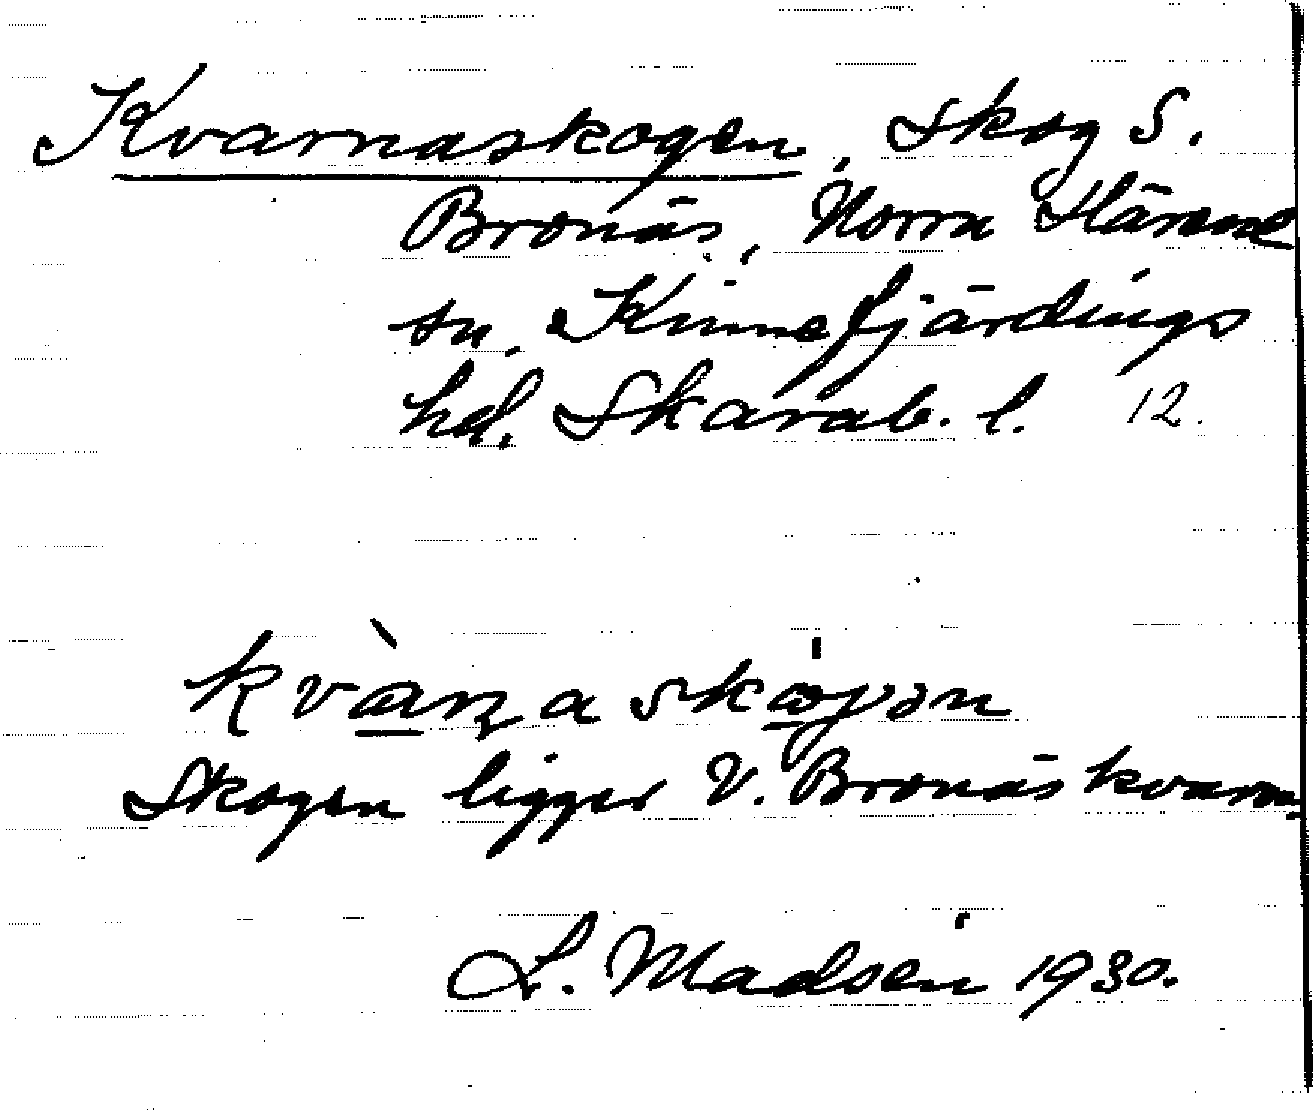 Kvarnaskogen, skog S.
Bronäs, Norra Härene
sn. Kinnefjärdings
hd. Skarab. l. 12.
Skogen ligger V. Bronäs kvarn.
L. Madsén 1930.